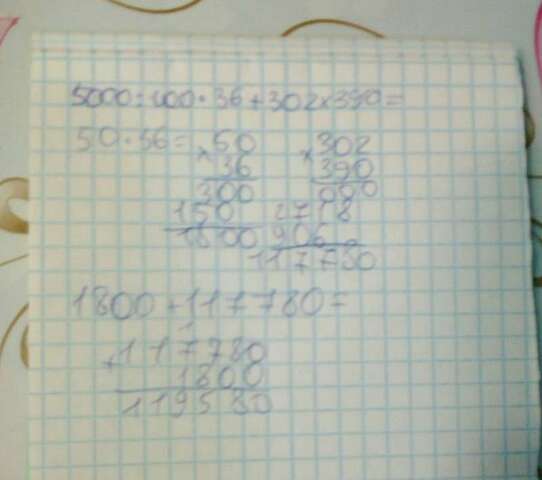 5000:100·36+302×390=
50·36= ×50 ×302
36 390
300 000
150 2718
1800 906
117780
1800+117780=
1
+117780
1800
119580